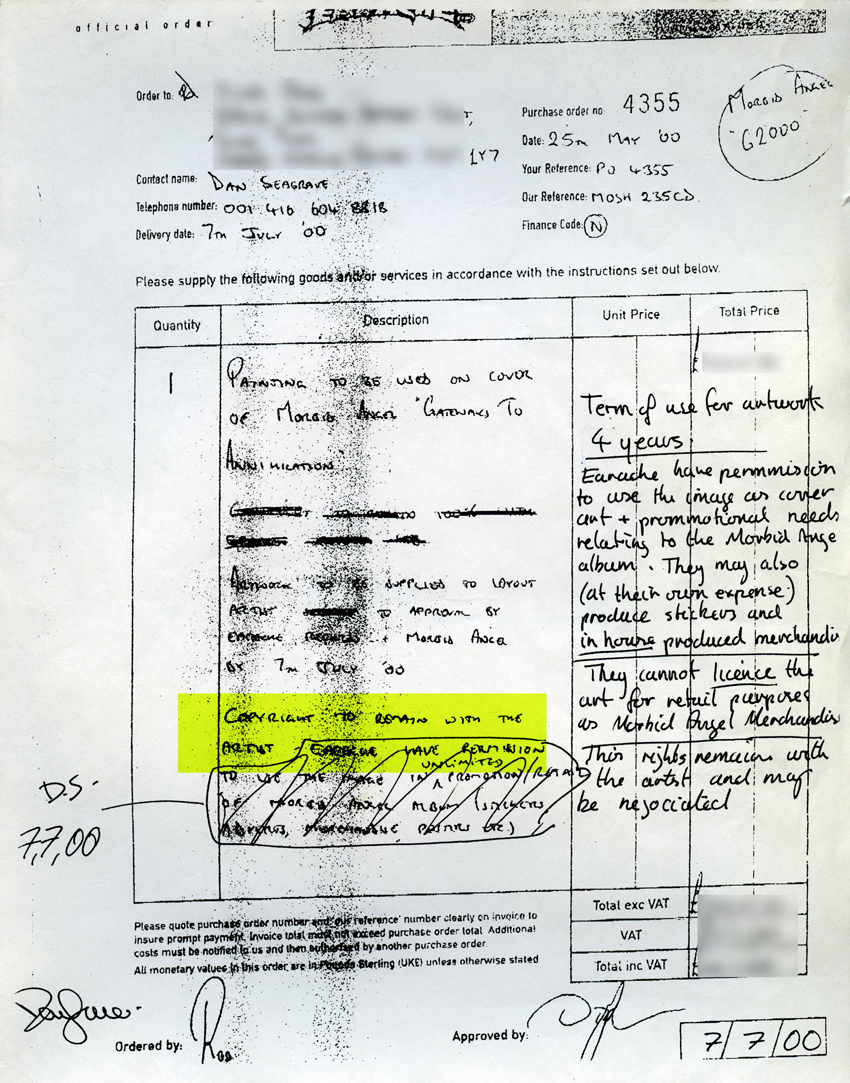 official order
Order to:
1Y7
Purchase order no: 4355
Date: 25TH MAY '00
Your Reference: PO 4355
Our Reference: MOSH 235CD
Finance Code: N
MORBID ANGEL
"G2000"
Contact name: DAN SEAGRAVE
Telephone number: 001 416 604 8818
Delivery date: 7TH JULY '00
Please supply the following goods and/or services in accordance with the instructions set out below.
Quantity Description Unit Price Total Price
£
1
PAINTING TO BE USED ON COVER
OF MORBID ANGEL "GATEWAYS TO
ANNIHILATION"
ARTWORK TO BE SUPPLIED TO LAYOUT
ARTIST TO APPROVAL BY
EARACHE RECORDS + MORBID ANGEL
BY 7TH JULY '00
COPYRIGHT TO REMAIN WITH THE
ARTIST EARACHE HAVE PERMISSION
UNLIMITED
TO USE THE IMAGE IN PROMOTION/RETAIL
OF MORBID ANGEL ALBUM (STICKERS
ADVERTS, MERCHANDISE POSTERS ETC.)
D.S.
7,7,00
Term of use for artwork
4 years
Earache have permmission
to use the image as cover
art + prommotional needs
relating to the Morbid Ange
album. They may also
(at their own expense)
produce stickers and
in house produced merchandis
They cannot licence the
art for retail purposes
as Morbid Angel Merchandis
This rights remains with
the artist and may
be negociated
Total exc VAT £
VAT
Total inc VAT £
Please quote purchase order number and 'our reference' number clearly on invoice to
insure prompt payment. Invoice total must not exceed purchase order total. Additional
costs must be notified to us and then authorised by another purchase order.
All monetary values in this order are in Pounds Sterling (UKE) unless otherwise stated
Ordered by:
Approved by:
7/7/00